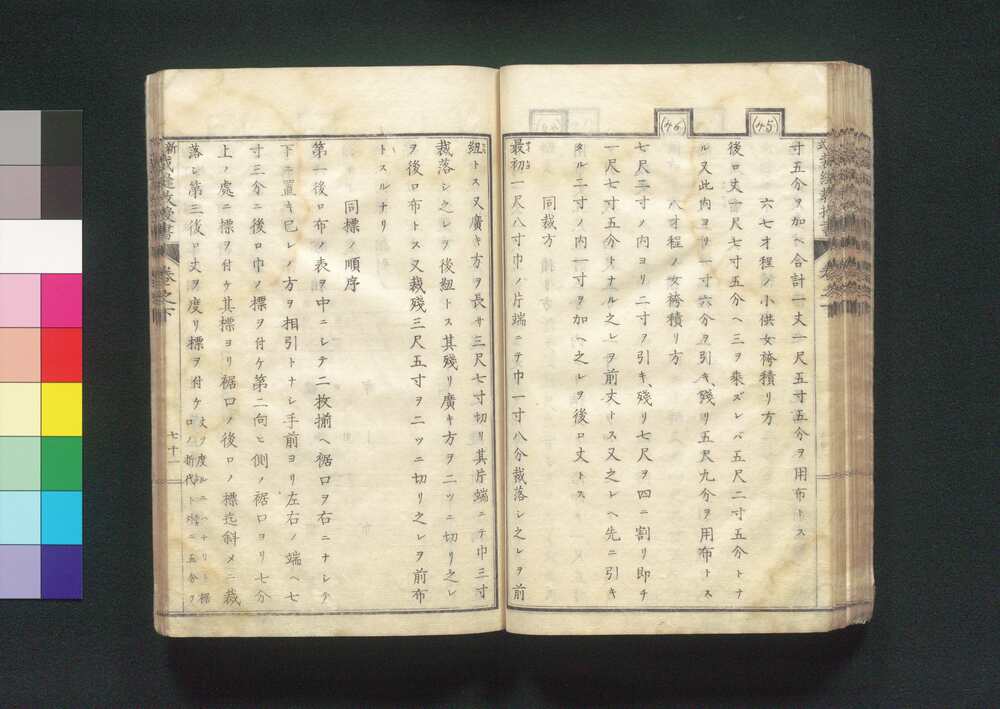 (45)
(46)
寸五分ヲ加ヘ合計一丈一尺五寸五分ヲ用布トス
六七才程ノ小供女袴積リ方
後ロ丈一尺七寸五分ヘ三ヲ乗ズレバ五尺二寸五分トナ
ル又此内ヨリ一寸六分ヲ引キ残リ五尺九分ヲ用布トス
八才程ノ女袴積リ方
七尺二寸ノ内ヨリ二寸ヲ引キ、残リ七尺ヲ四ニ割リ即チ
一尺七寸五分トナル之レヲ前丈トス又之レヘ先ニ引キ
タル二寸ノ内一寸ヲ加ヘ之レヲ後ロ丈トス
同裁方
最初一尺八寸巾ノ片端ニテ巾一寸八分裁落シ之レヲ前
紐トス又廣キ方ヲ長サ三尺七寸切リ其片端ニテ巾三寸
裁落シ之レヲ後紐トス其残リ廣キ方ヲ二ッニ切リ之レ
ヲ後ロ布トス又裁残三尺五寸ヲ二ッニ切リ之レヲ前布
トスルナリ
同標ノ順序
第一後ロ布ノ表ヲ中ニシテ二枚揃ヘ裾口ヲ右ニナシテ
下ニ置キ巳レノ方ヲ相引トナシ手前ヨリ左右ノ端ヘ七
寸三分ニ後ロ巾ノ標ヲ付ケ第二向ヒ側ノ裾口ヨリ七分
上ノ處ニ標ヲ付ケ其標ヨリ裾口ノ後ロノ標迄斜メニ裁
落シ第三後ロ丈ヲ度リ標ヲ付ケ
卷之下
七十一